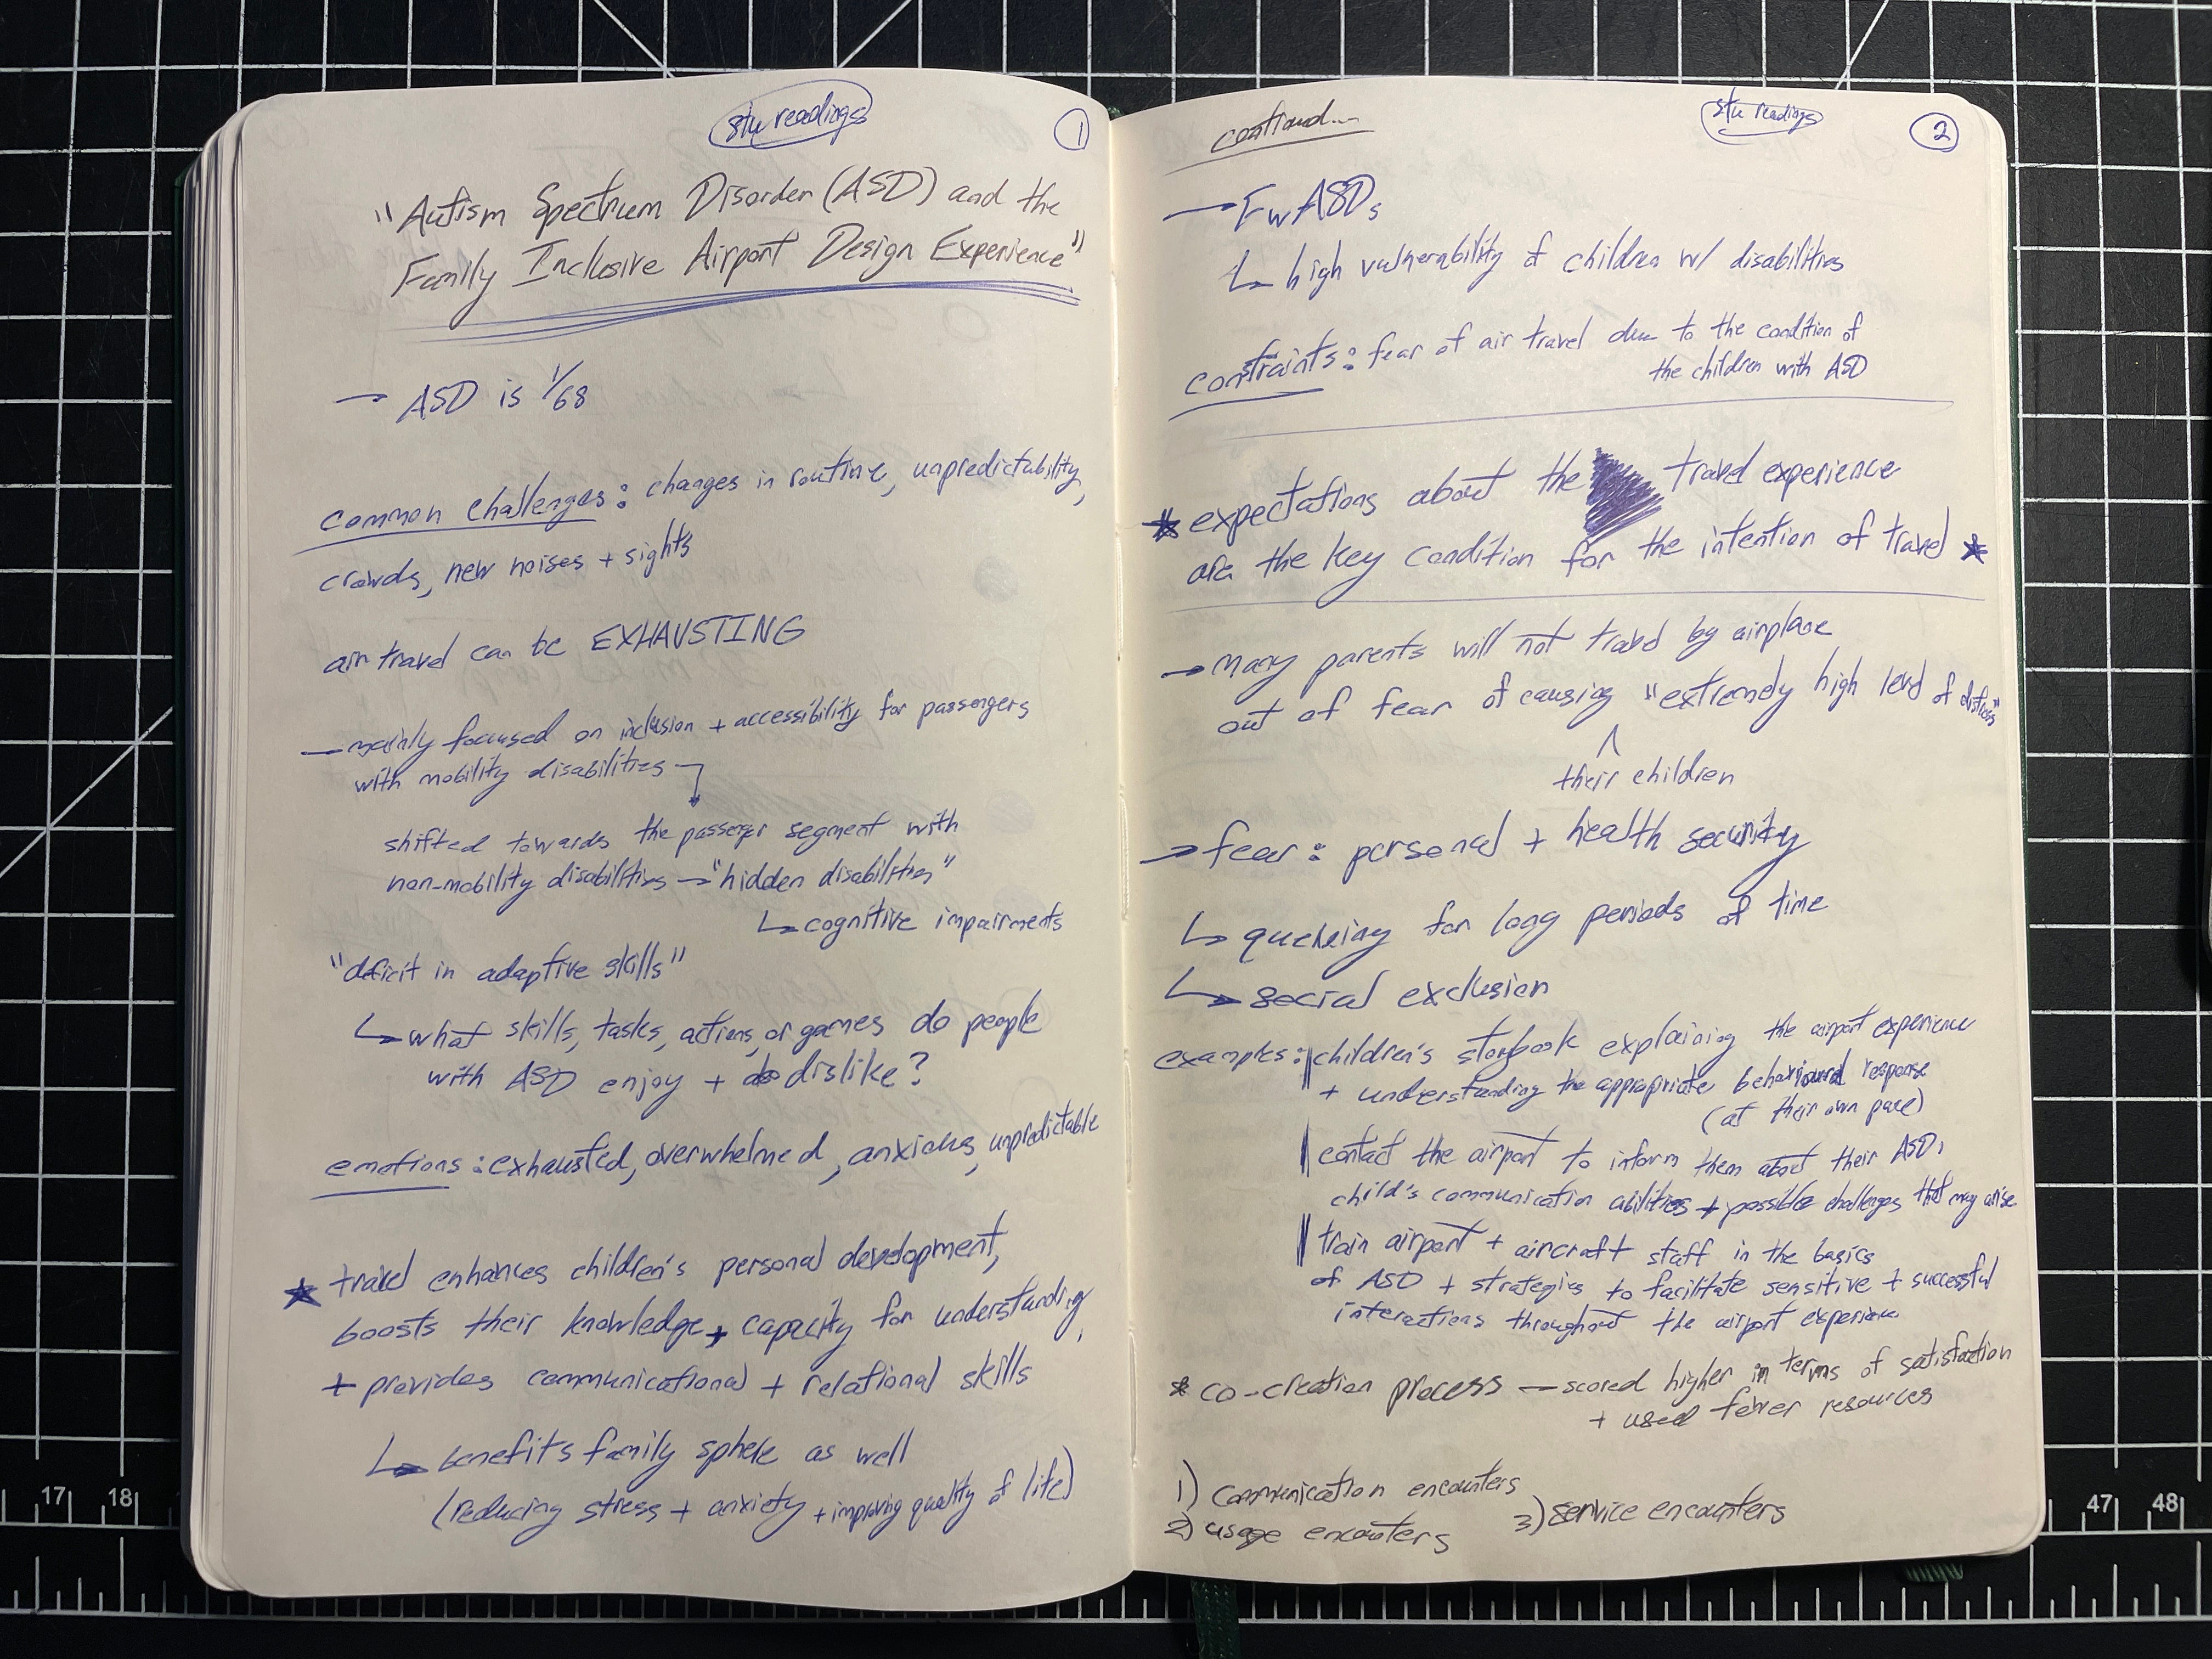 stu readings
1
"Autism Spectrum Disorder (ASD) and the
Family Inclusive Airport Design Experience"
→ ASD is 1/68
common challenges: changes in routine, unpredictability,
crowds, new noises + sights
air travel can be EXHAUSTING
— mainly focused on inclusion + accessibility for passengers
with mobility disabilities
shifted towards the passenger segment with
non-mobility disabilities → "hidden disabilities"
↳ cognitive impairments
"deficit in adaptive skills"
↳ what skills, tasks, actions, or games do people
with ASD enjoy + do dislike?
emotions: exhausted, overwhelmed, anxious, unpredictable
★ travel enhances children's personal development,
boosts their knowledge + capacity for understanding,
+ provides communicational + relational skills
↳ benefits family sphere as well
(reducing stress + anxiety + improving quality of life)
continued...
stu readings
2
→ FwASDs
↳ high vulnerability of children w/ disabilities
constraints: fear of air travel due to the condition of
the children with ASD
★ expectations about the travel experience
are the key condition for the intention of travel ★
→ many parents will not travel by airplane
out of fear of causing "extremely high level of distress"
^
their children
→ fear: personal + health security
↳ queueing for long periods of time
↳ social exclusion
examples: children's storybook explaining the airport experience
+ understanding the appropriate behavioural response
(at their own pace)
contact the airport to inform them about their ASD,
child's communication abilities + possible challenges that may arise
train airport + aircraft staff in the basics
of ASD + strategies to facilitate sensitive + successful
interactions throughout the airport experience
* co-creation process — scored higher in terms of satisfaction
+ used fewer resources
1) communication encounters
2) usage encounters
3) service encounters
17 18
47 48